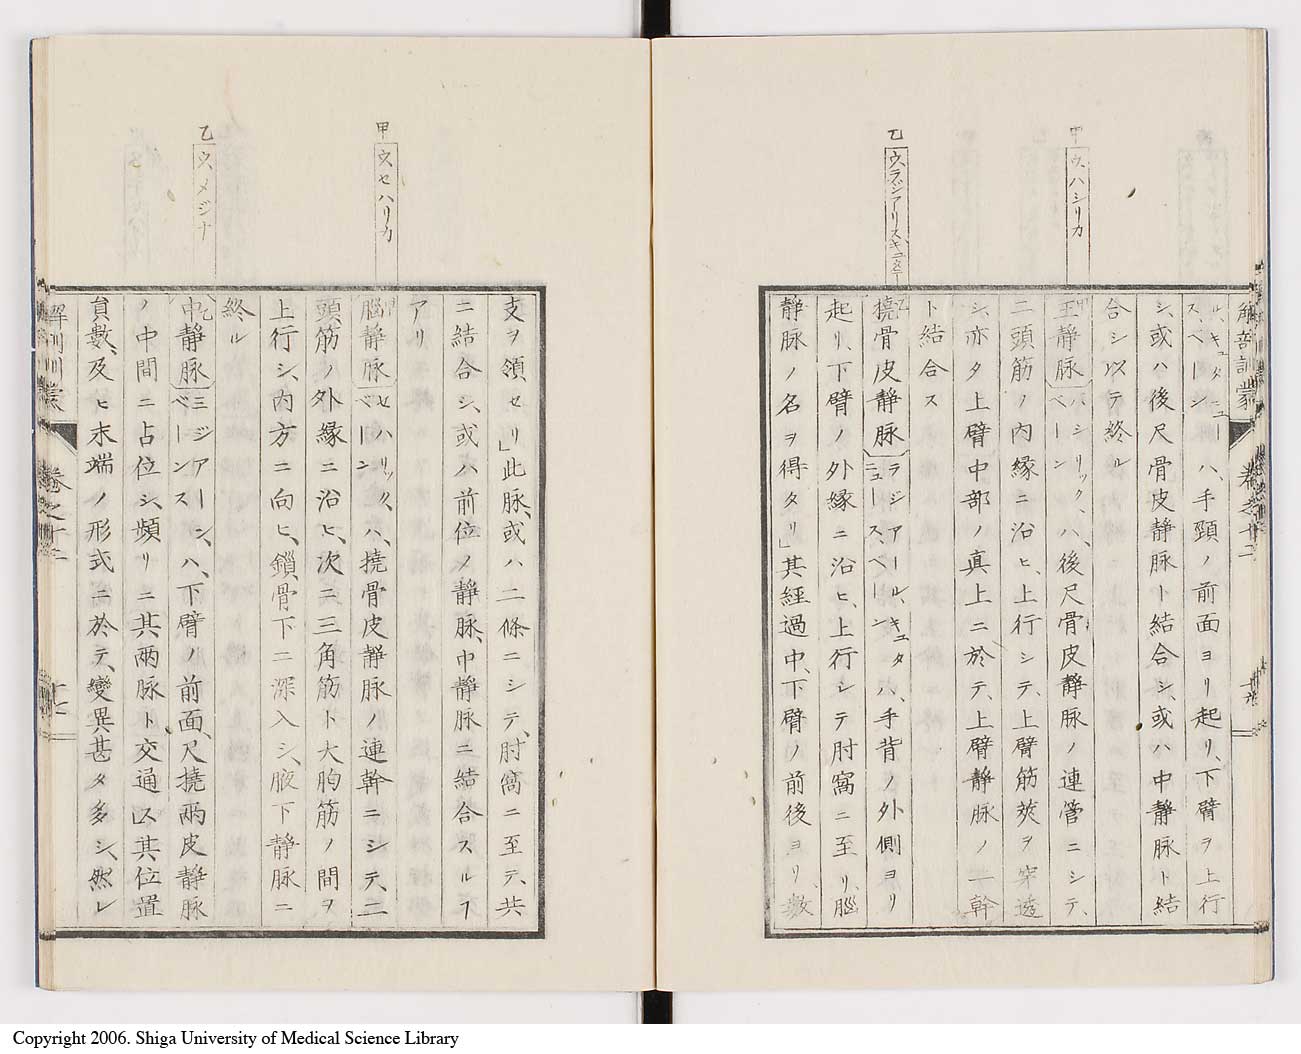 甲
ウ、ハシリカ
乙
ウ、ラジアリスキュタネー
解剖訓蒙
卷之十二
ル、キュタニュース、ベーン
ハ、手頸ノ前面ヨリ起リ、下臂ヲ上行
シ、或ハ後尺骨皮静脉ト結合シ、或ハ中静脉ト結
合シ以テ終ル
王静脉 バシリック、ベーン ハ、後尺骨皮静脉ノ連管ニシテ、
二頭筋ノ内縁ニ沿ヒ、上行シテ、上臂筋莢ヲ穿透
シ、亦タ上臂中部ノ真上ニ於テ、上臂静脉ノ一幹
ト結合ス
橈骨皮静脉 ラジアール、キュタニュース、ベーン ハ、手背ノ外側ヨリ
起リ、下臂ノ外縁ニ沿ヒ、上行シテ肘窩ニ至リ、腦
静脉ノ名ヲ得タリ」其経過中、下臂ノ前後ヨリ、数
甲
ウ、セハリカ
乙
ウ、メジナ
支ヲ領セリ」此脉、或ハ二條ニシテ、肘窩ニ至テ、共
ニ結合シ、或ハ前位ノ静脉、中静脉ニ結合スルフ
アリ
腦静脉 セハリック、ベーン ハ、橈骨皮静脉ノ連幹ニシテ、二
頭筋ノ外縁ニ沿ヒ、次ニ三角筋ト大胸筋ノ間ヲ
上行シ、内方ニ向ヒ、鎖骨下ニ深入シ、腋下静脉ニ
終ル
中静脉 ミジアーン、ベーンス ハ、下臂ノ前面、尺橈両皮静脉
ノ中間ニ占位シ、頻リニ其両脉ト交通ス」其位置
員數、及ヒ末端ノ形式ニ於テ、變異甚タ多シ、然レ
解剖訓蒙
卷之十二